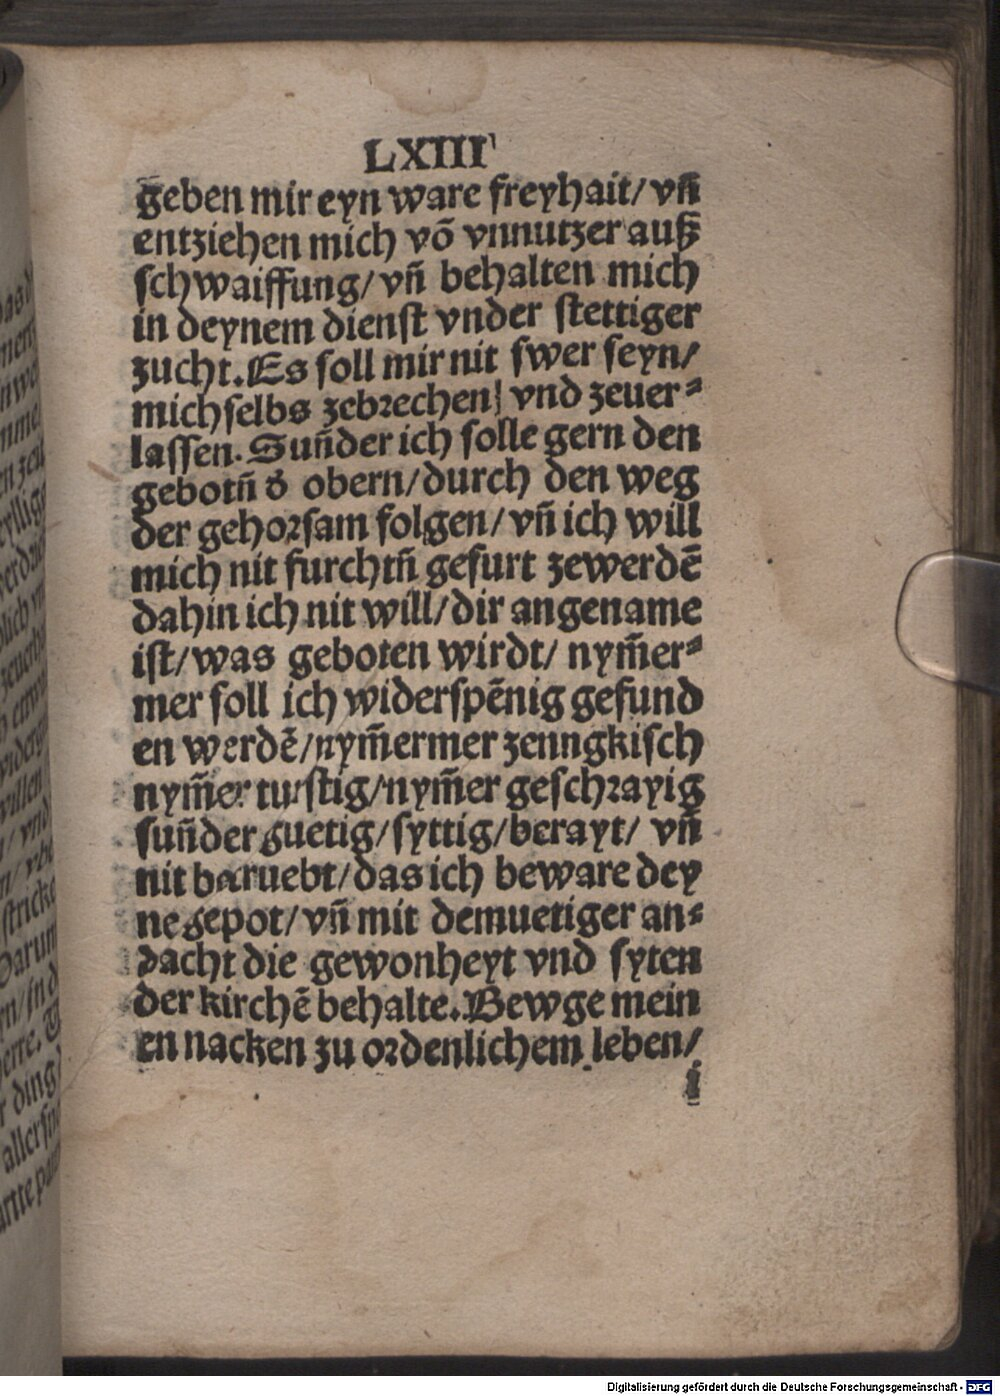 LXIII
geben mir eyn ware freyhait/ vn̄
entziehen mich vō vnnutzer auß
schwaiffung/ vn̄ behalten mich
in deynem dienst vnder stettiger
zucht. Es soll mir nit swer seyn/
mich selbs zebrechen/ vnd zeuer⸗
lassen. Sun̄der ich solle gern den
gebotn̄ d̕ obern/ durch den weg
der gehorsam folgen/ vn̄ ich will
mich nit furchtn̄ gefurt zewerdē
dahin ich nit will/ dir angename
ist/ was geboten wirdt/ nym̄er⸗
mer soll ich widerspēnig gefund
en werdē/ nym̄ermer zenngkisch
nym̄er turstig/ nym̄er geschrayig
sun̄der guetig/ syttig/ berayt/ vn̄
nit betruebt/ das ich beware dey
ne gepot/ vn̄ mit demuetiger an⸗
dacht die gewonheyt vnd syten
der kirchē behalte. Bewge mein
en nacken zu ordenlichem leben/
i
Digitalisierung gefördert durch die Deutsche Forschungsgemeinschaft - DFG